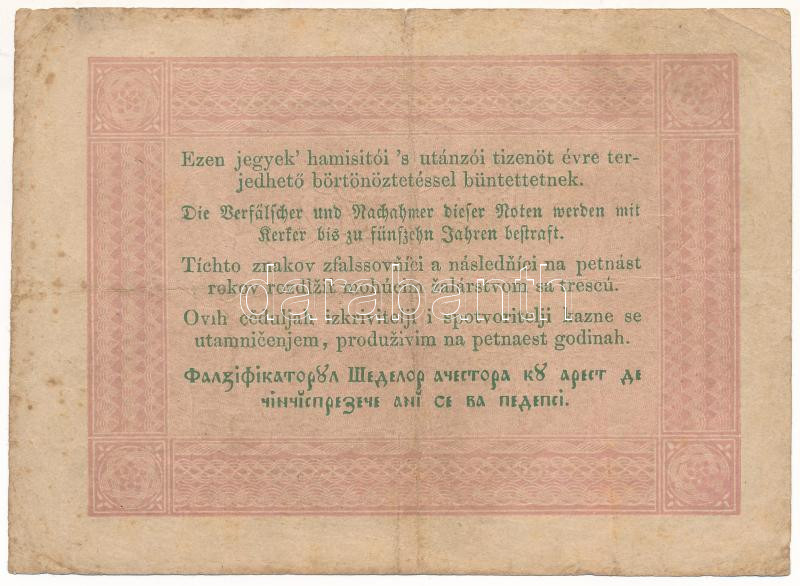 Ezen jegyek' hamisitói 's utánzói tizenöt évre ter-
jedhető börtönöztetéssel büntettetnek.
Die Verfälscher und Nachahmer dieser Noten werden mit
Kerker bis zu fünfzehn Jahren bestraft.
Tíchto znakov zfalssovňíci a následňíci na petnást
rokov rozdlžiť mohúcím žalárstvom sa trescú.
darabanth
Ovih ceduljah izkrivitelji i spotvoritelji kazne se
utamničenjem, produživim na petnaest godinah.
Фалꙁіфікаторꙋл Шеделор ачестора кꙋ арест де
чінчіспреꙁече ані се ва педепсі.